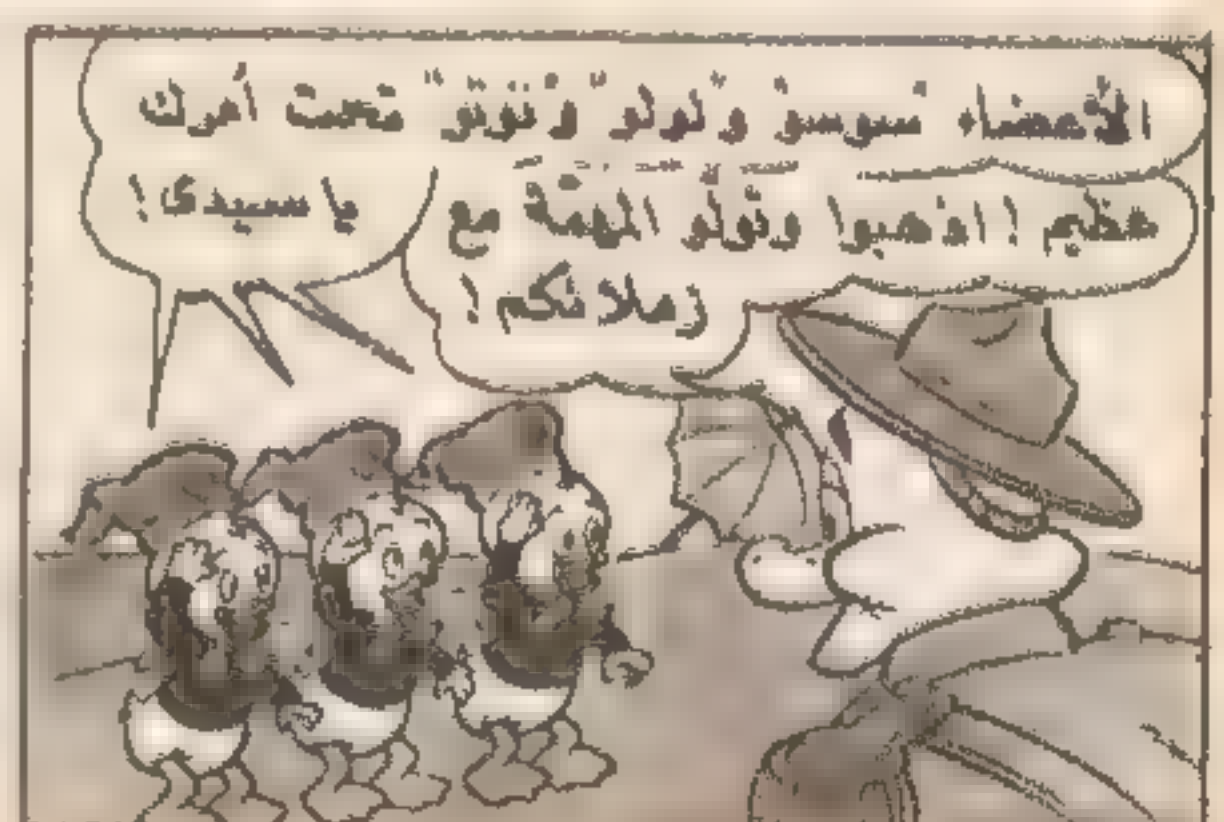 الأعضاء "سوسو" و"لولو" و"توتو" تحت أمرك
يا سيدى!
عظيم! اذهبوا وتولّو المهمّة مع
زملائكم!